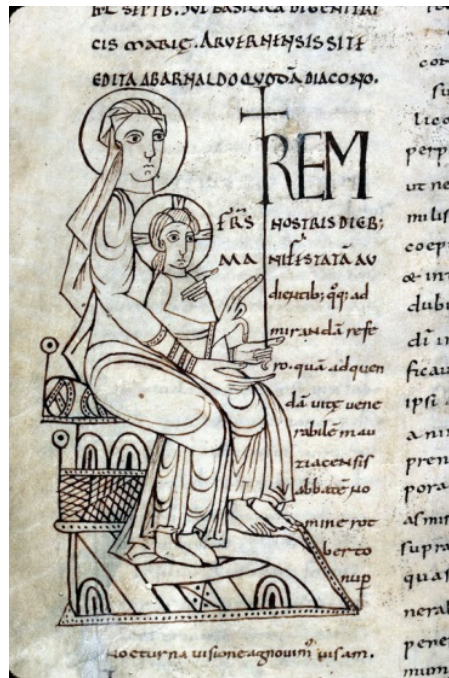 CIS MARIĘ. ARVERNENSIS SITĘ
EDITA AB ARNALDO QUODĀ DIACONO.
REM
FR̄S NOSTRIS DIEB;
MANIFESTATĀ AU
dientib; q̄q; ad
mirandā refe
ro. quā ad quen
dā uitę uene
rabilē mau
ziacensis
abbatē no
mine rot
berto
nup̄
nocturna uisione agnouim᷒ uisam.
lico
perp
ut ne
coep
dubi
ficau
ipsi
pren
pora
asmis
supra
quas
nerab
pene